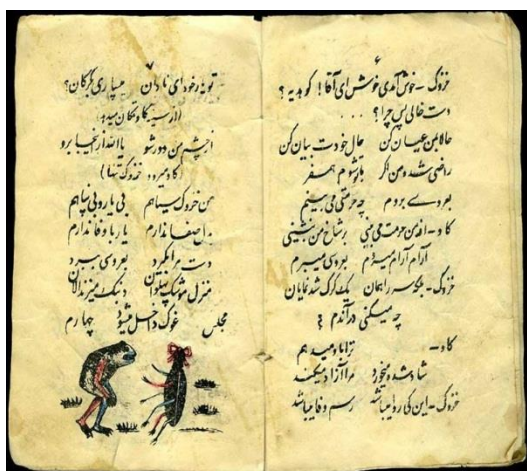 ۶
خزوک - خوش آمدی خوش ای آقا! کو هدیه ؟
دست خالی پس چرا ؟ ...
حالا بمن عیان کن حال خودت بیان کن
راضی شده من اگر شوم همسفر
بروم چه حرمتی می بینم
گاو - از من حرمت می بینی بر شاخ من بنشینی
آرام آرام میروم بعروسی میبرم
خزوک - سر راهمان یک گرگ شد نمایان
چه میکنی در آندم ؟
گاو - ترا باو میدهم
شاد شده میخورد مرا آزاد میکند
خزوک - این کی روا میباشد رسم وفا میباشد
۷
تو یار خود ای نادان میسپاری گرگان؟
گاو تکان میدهد)
از چشم من دور شو یاالله از اینجا برو
(گاو میرود خزوک تنها)
من خزوک سیاهم بی یار و بی پناهم
صفا ندارم یار با وفا ندارم
دست مرا بگیرد بعروسی ببرد
منزل موشک پهلوان دنبک میزند الان
مجلس غوک داخل میشود چهارم